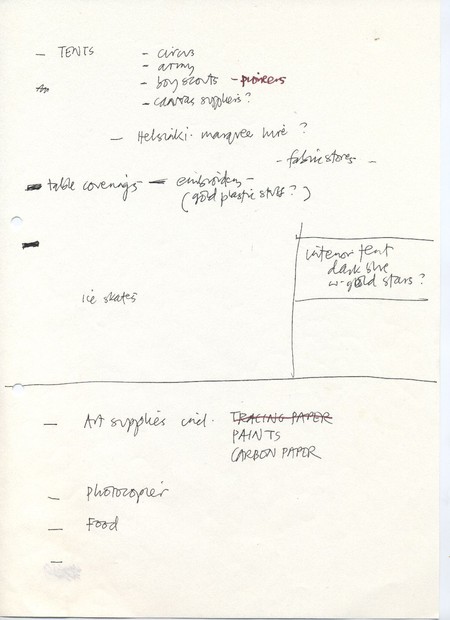 — TENTS - circus
- army
- boy scouts - pioneers
- canvas suppliers?
— Helsinki. marquee hire?
- fabric stores -
- table coverings — embroidery -
(gold plastic stuff?)
interior tent
dark blue
w-gold stars?
ice skates
— Art supplies incl. TRACING PAPER
PAINTS
CARBON PAPER
— Photocopier
— Food
—